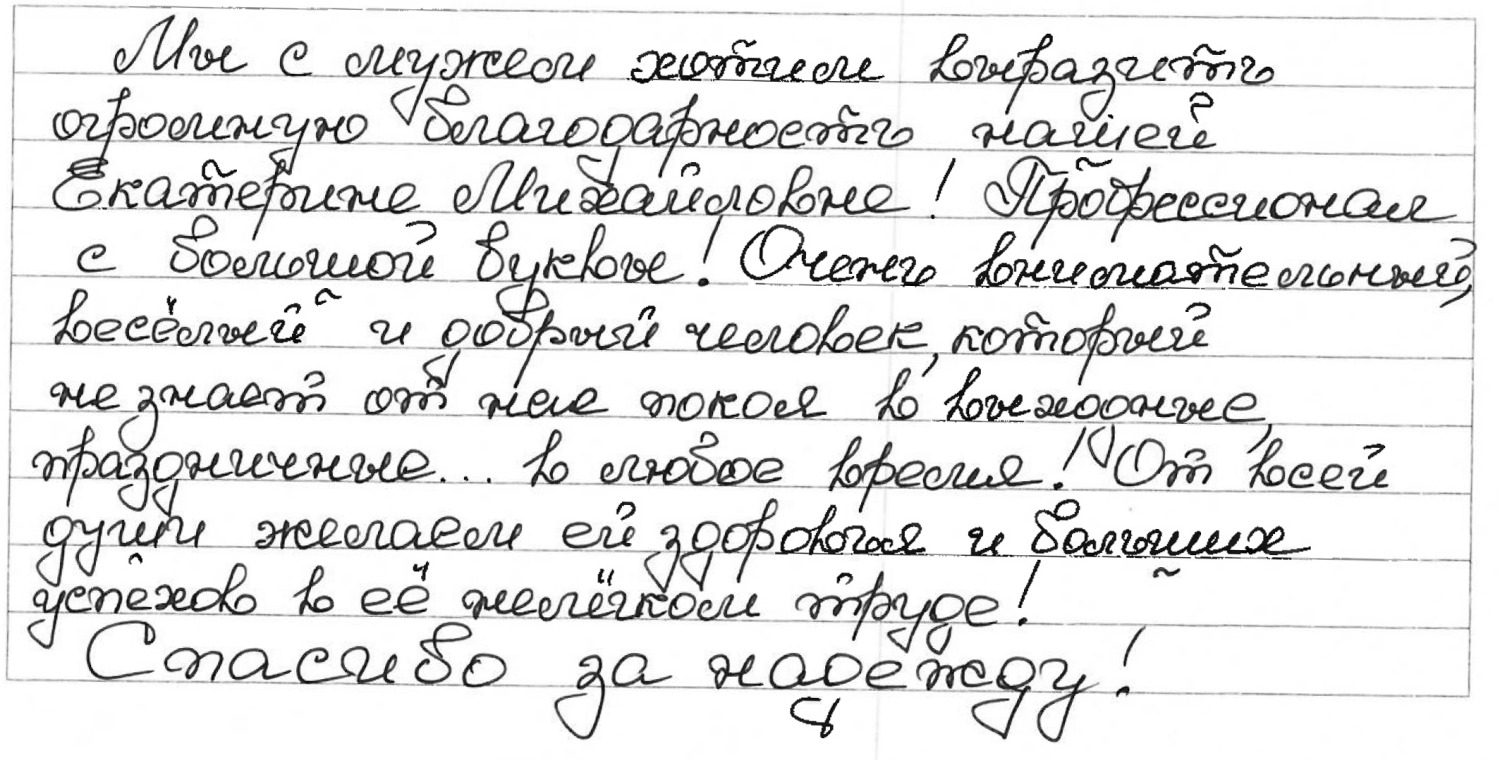 Мы с мужем хотим выразить
огромную благодарность нашей
Екатерине Михайловне! Профессионал
с большой буквы! Очень внимательный,
весёлый и добрый человек, который
не знает от нас покоя в выходные,
праздничные... в любое время! От всей
души желаем ей здоровья и больших
успехов в её нелёгком труде!
Спасибо за надежду!